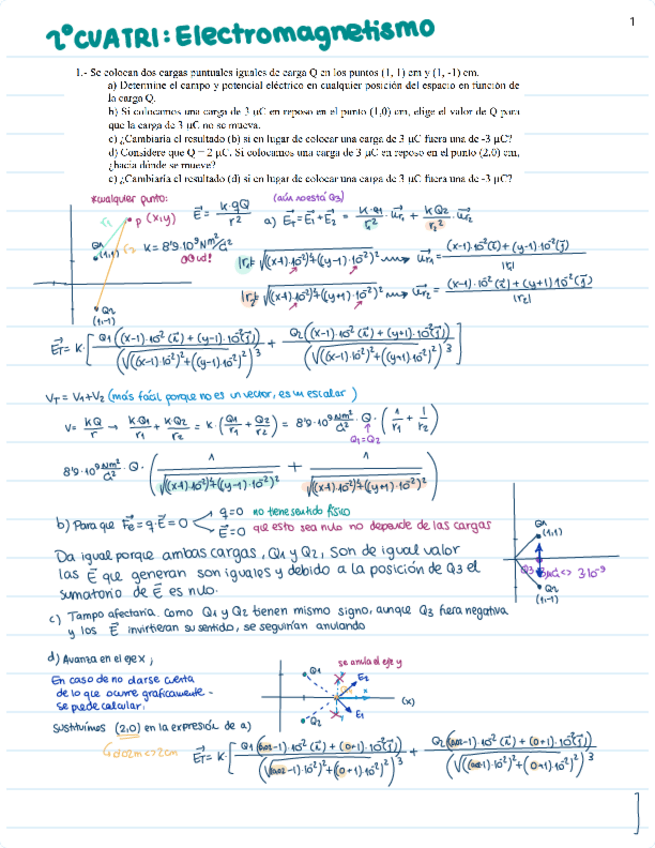 1
2º CUATRI: Electromagnetismo
1.- Se colocan dos cargas puntuales iguales de carga Q en los puntos (1, 1) cm y (1, -1) cm.
a) Determine el campo y potencial eléctrico en cualquier posición del espacio en función de
la carga Q.
b) Si colocamos una carga de 3 μC en reposo en el punto (1,0) cm, elige el valor de Q para
que la carga de 3 μC no se mueva.
c) ¿Cambiaría el resultado (b) si en lugar de colocar una carga de 3 μC fuera una de -3 μC?
d) Considere que Q = 2 μC. Si colocamos una carga de 3 μC en reposo en el punto (2,0) cm,
¿hacia dónde se mueve?
e) ¿Cambiaría el resultado (d) si en lugar de colocar una carga de 3 μC fuera una de -3 μC?
xcualquier punto:
(aún no está Q3)
P (x,y)
E⃗ = K·qQ / r²
a) E⃗T = E⃗1 + E⃗2 = K·Q1 / r1² · u⃗r1 + K·Q2 / r2² · u⃗r2
Q1 (1,1)
r1
r2
K = 8'9·10⁹ Nm²/C²
Q2
(1,-1)
|r1| = √((x-1)·10⁻²)²+((y-1)·10⁻²)² → u⃗r1 = (x-1)·10⁻²(i⃗)+(y-1)·10⁻²(j⃗) / |r1|
|r2| = √((x-1)·10⁻²)²+((y+1)·10⁻²)² → u⃗r2 = (x-1)·10⁻²(i⃗)+(y+1)·10⁻²(j⃗) / |r2|
E⃗T = K·[ Q1((x-1)·10⁻²(i⃗)+(y-1)·10⁻²(j⃗)) / (√((x-1)·10⁻²)²+((y-1)·10⁻²)²)³ + Q2((x-1)·10⁻²(i⃗)+(y+1)·10⁻²(j⃗)) / (√((x-1)·10⁻²)²+((y+1)·10⁻²)²)³ ]
VT = V1+V2 (más fácil porque no es un vector, es un escalar)
V = KQ / r → K·Q1 / r1 + K·Q2 / r2 = K·(Q1 / r1 + Q2 / r2) = 8'9·10⁹ Nm²/C² · Q · (1 / r1 + 1 / r2)
Q1=Q2
8'9·10⁹ Nm²/C² · Q · (1 / √((x-1)·10⁻²)²+((y-1)·10⁻²)² + 1 / √((x-1)·10⁻²)²+((y+1)·10⁻²)²)
b) Para que F⃗e = q·E⃗ = 0
q=0 no tiene sentido físico
E⃗=0 que esto sea nulo no depende de las cargas
Da igual porque ambas cargas, Q1 y Q2, son de igual valor
las E⃗ que generan son iguales y debido a la posición de Q3 el
sumatorio de E⃗ es nulo.
Q1
(1,1)
Q3
Q2
(1,-1)
c) Tampo afectaría. Como Q1 y Q2 tienen mismo signo, aunque Q3 fuera negativa
y los E⃗ invirtieran su sentido, se seguirían anulando
d) Avanza en el eje x;
se anula el eje y
Q1
E2
Q2
E1
(x)
En caso de no darse cuenta
de lo que ocurre graficamente -
se puede calcular:
Sustituimos (2,0) en la expresión de a)
0'02m <> 2cm
E⃗T = K·[ Q1(0'02-1)·10⁻²(i⃗)+(0-1)·10⁻²(j⃗)) / (√((0'02-1)·10⁻²)²+((0-1)·10⁻²)²)³ + Q2(0'02-1)·10⁻²(i⃗)+(0+1)·10⁻²(j⃗)) / (√((0'02-1)·10⁻²)²+((0+1)·10⁻²)²)³ ]